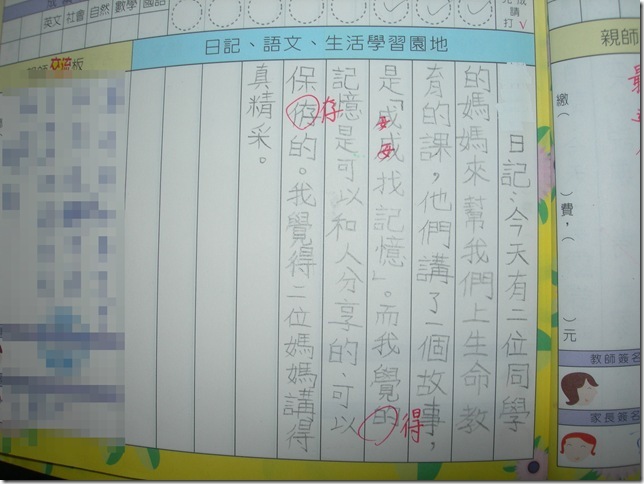 英文 社會 自然 數學 國語
請打√
日記、語文、生活學習園地
交流板
日記:今天有二位同學
的媽媽來幫我們上生命教
育的課,他們講了一個故事,
是「威威找記憶」。而我覺的
得
記憶是可以和人分享的、可以
保侟的。我覺得二位媽媽講得
存
真精采。
親師
繳( )費,( )元
教師簽名
家長簽名